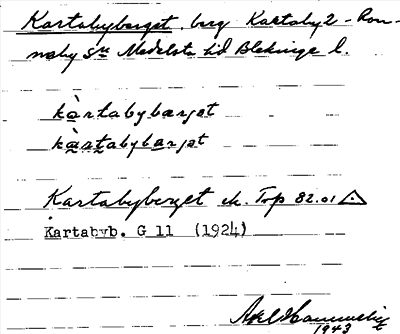 Kartabyberget, berg Kartaby 2 - Ron-
neby sn Medelsta hd Blekinge l.
kàrtabybærjət
kàrtabybærjət
Kartabyberget ek. Trp 82.01
Kartabyb. G 11 (1924)
Axel
1943